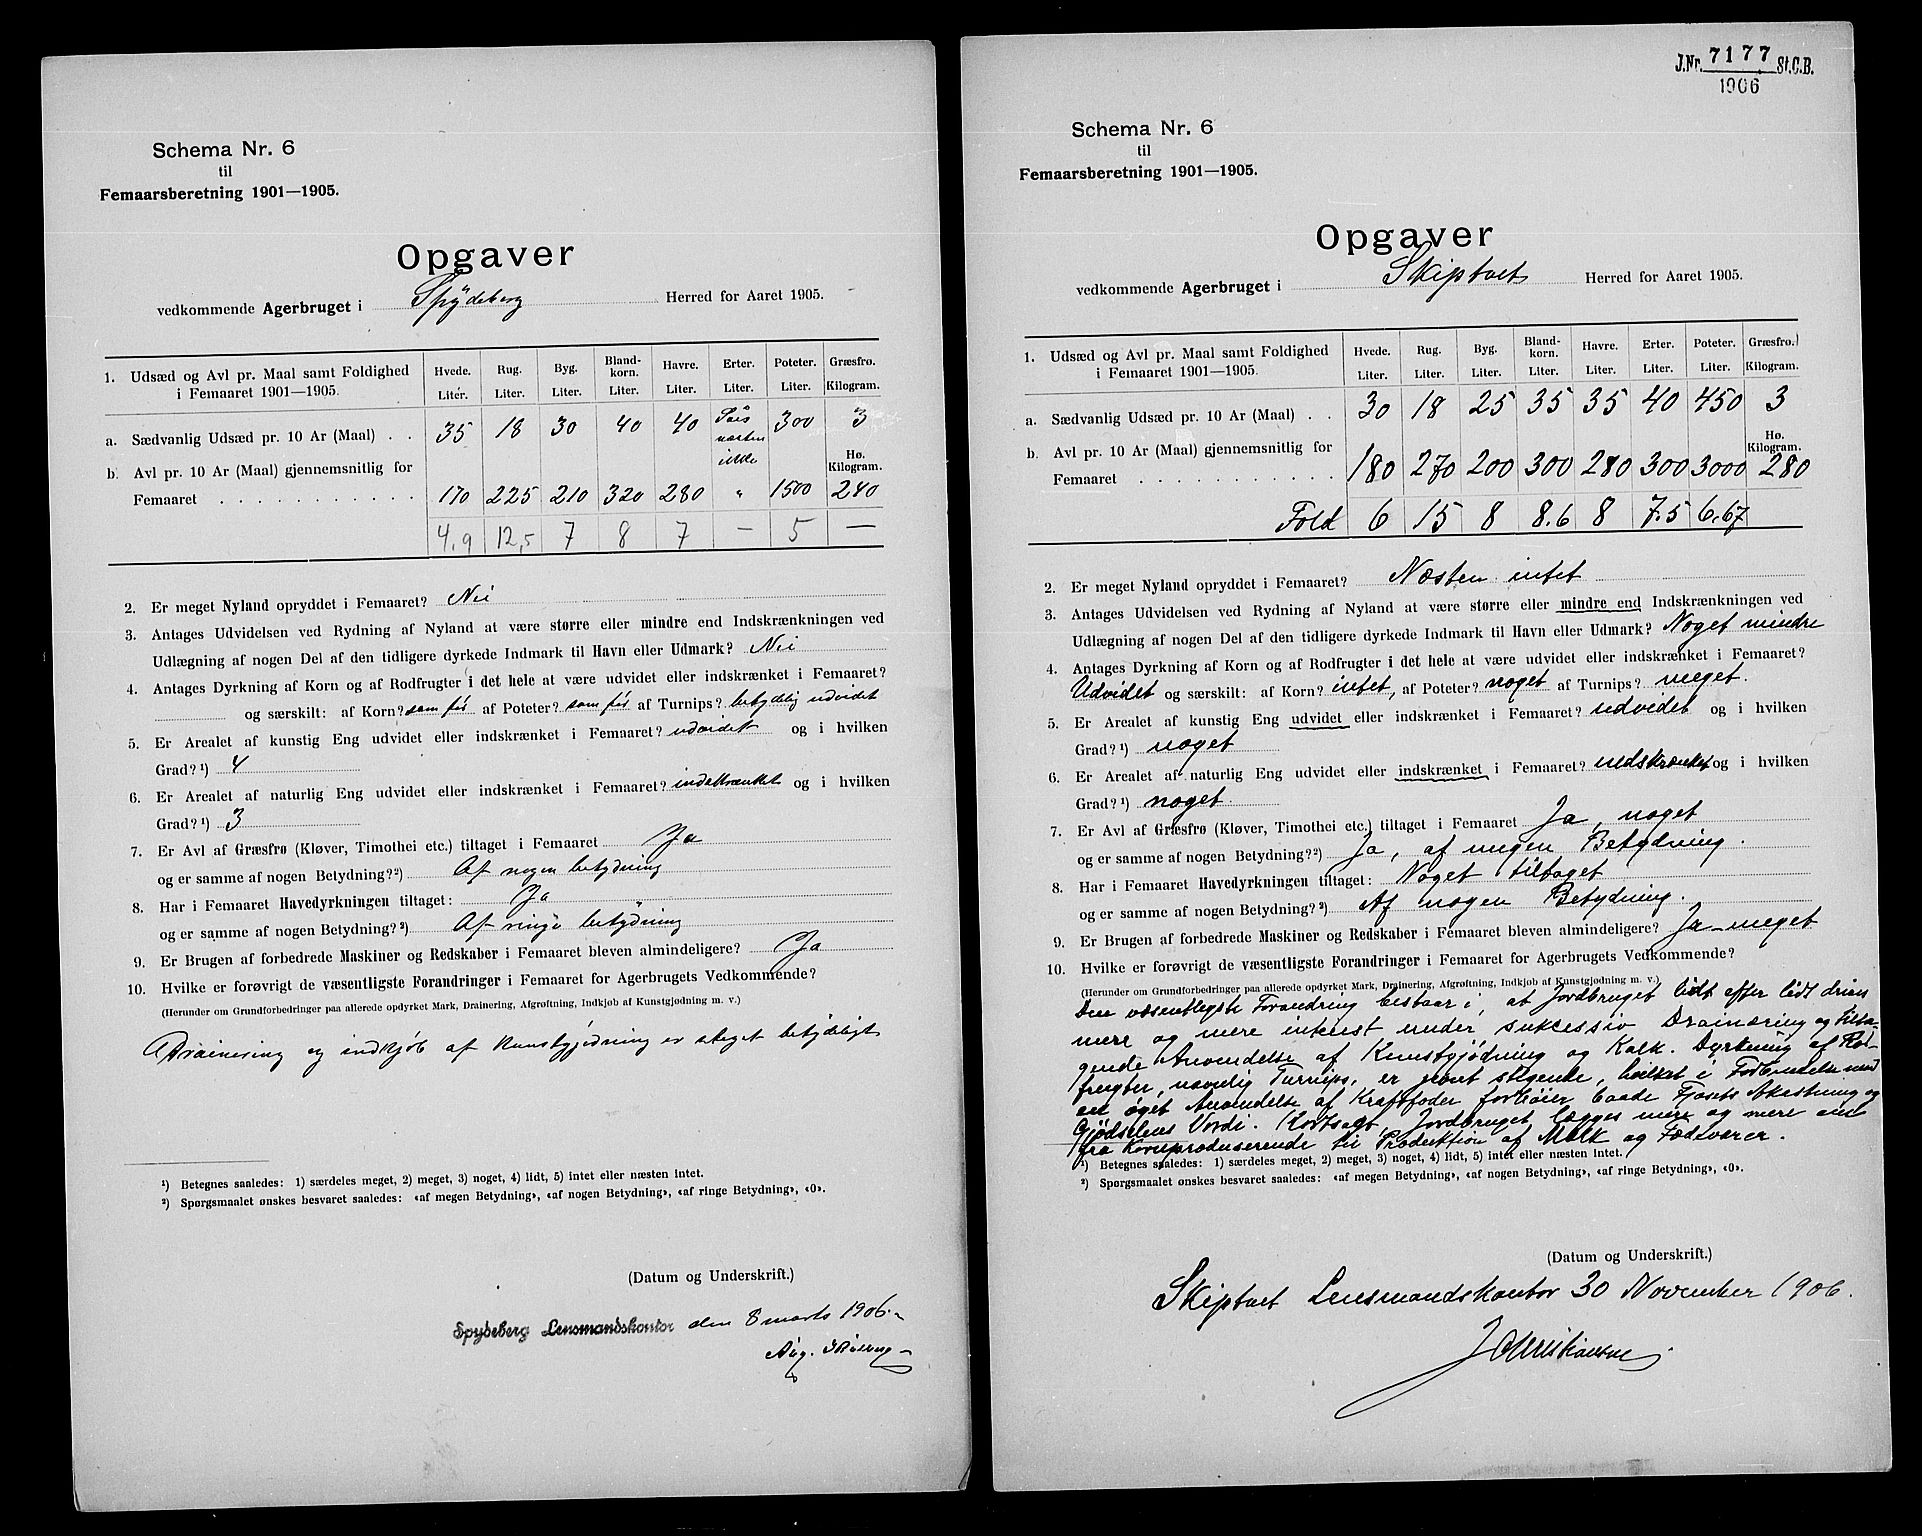 Schema Nr. 6
til
Femaarsberetning 1901—1905.
Opgaver
vedkommende Agerbruget i Spydeberg Herred for Aaret 1905.
1. Udsæd og Avl pr. Maal samt Foldighed i Femaaret 1901—1905. Hvede. Liter. Rug. Liter. Byg. Liter. Bland-korn. Liter. Havre. Liter. Erter. Liter. Poteter. Liter. Græsfrø. Kilogram.
a. Sædvanlig Udsæd pr. 10 Ar (Maal) . . 35 18 30 40 40 Saaes næsten ikke 300 3
b. Avl pr. 10 Ar (Maal) gjennemsnitlig for Hø. Kilogram.
Femaaret . . . . . . . . . . . . 170 225 210 320 280 " 1500 240
4.9 12,5 7 8 7 — 5 —
2. Er meget Nyland opryddet i Femaaret? Nei
3. Antages Udvidelsen ved Rydning af Nyland at være større eller mindre end Indskrænkningen ved
Udlægning af nogen Del af den tidligere dyrkede Indmark til Havn eller Udmark? Nei
4. Antages Dyrkning af Korn og af Rodfrugter i det hele at være udvidet eller indskrænket i Femaaret?
og særskilt: af Korn? som før af Poteter? som før af Turnips? betydelig udvidet
5. Er Arealet af kunstig Eng udvidet eller indskrænket i Femaaret? udvidet og i hvilken
Grad? ¹) 4
6. Er Arealet af naturlig Eng udvidet eller indskrænket i Femaaret? indskrænket og i hvilken
Grad? ¹) 3
7. Er Avl af Græsfrø (Kløver, Timothei etc.) tiltaget i Femaaret Ja
og er samme af nogen Betydning? ²) Af nogen betydning
8. Har i Femaaret Havedyrkningen tiltaget: Ja
og er samme af nogen Betydning? ²) Af ringe betydning
9. Er Brugen af forbedrede Maskiner og Redskaber i Femaaret bleven almindeligere? Ja
10. Hvilke er forøvrigt de væsentligste Forandringer i Femaaret for Agerbrugets Vedkommende?
(Herunder om Grundforbedringer paa allerede opdyrket Mark, Drainering, Afgrøftning, Indkjøb af Kunstgjødning m. v.)
Drainering og indkjøb af Kunstgjødning er steget betydeligt
¹) Betegnes saaledes: 1) særdeles meget, 2) meget, 3) noget, 4) lidt, 5) intet eller næsten intet.
²) Spørgsmaalet ønskes besvaret saaledes: «af megen Betydning», «af nogen Betydning», «af ringe Betydning», «0».
(Datum og Underskrift.)
Spydeberg Lensmandskontor den 8 marts 1906.
Aug.
J.Nr. 7177 St.C.B.
1906
Schema Nr. 6
til
Femaarsberetning 1901—1905.
Opgaver
vedkommende Agerbruget i Skiptvet Herred for Aaret 1905.
1. Udsæd og Avl pr. Maal samt Foldighed i Femaaret 1901—1905. Hvede. Liter. Rug. Liter. Byg. Liter. Bland-korn. Liter. Havre. Liter. Erter. Liter. Poteter. Liter. Græsfrø. Kilogram.
a. Sædvanlig Udsæd pr. 10 Ar (Maal) . . 30 18 25 35 35 40 450 3
b. Avl pr. 10 Ar (Maal) gjennemsnitlig for Hø. Kilogram.
Femaaret . . . . . . . . . . . . 180 270 200 300 280 300 3000 280
Fold 6 15 8 8.6 8 7.5 6.67
2. Er meget Nyland opryddet i Femaaret? Næsten intet
3. Antages Udvidelsen ved Rydning af Nyland at være større eller mindre end Indskrænkningen ved
Udlægning af nogen Del af den tidligere dyrkede Indmark til Havn eller Udmark? Noget mindre
4. Antages Dyrkning af Korn og af Rodfrugter i det hele at være udvidet eller indskrænket i Femaaret?
Udvidet og særskilt: af Korn? intet, af Poteter? noget af Turnips? meget.
5. Er Arealet af kunstig Eng udvidet eller indskrænket i Femaaret? udvidet og i hvilken
Grad? ¹) noget
6. Er Arealet af naturlig Eng udvidet eller indskrænket i Femaaret? indskrænket og i hvilken
Grad? ¹) noget.
7. Er Avl af Græsfrø (Kløver, Timothei etc.) tiltaget i Femaaret Ja, noget
og er samme af nogen Betydning? ²) Ja, af megen Betydning.
8. Har i Femaaret Havedyrkningen tiltaget: Noget tiltaget
og er samme af nogen Betydning? ²) Af nogen Betydning.
9. Er Brugen af forbedrede Maskiner og Redskaber i Femaaret bleven almindeligere? Ja meget
10. Hvilke er forøvrigt de væsentligste Forandringer i Femaaret for Agerbrugets Vedkommende?
(Herunder om Grundforbedringer paa allerede opdyrket Mark, Drainering, Afgrøftning, Indkjøb af Kunstgjødning m. v.)
Den væsentligste Forandring bestaar i, at Jordbruget lidt efter lidt drives
mere og mere intenst under sukcessiv Drainæring og tilta-
gende Anvendelse af Kunstgjødning og Kalk. Dyrkning af Rod-
frugter, navnlig Turnips, er jevnt stigende, hvilket i Forbindelse med
en øget Anvendelse af Kraftfoder forhøier baade Fjøsets Avkastning og
Gjødselens Værdi. Kortsagt, Jordbruget lægges mere og mere om
fra kornproduserende til Produktion af Melk og Fødevarer.
¹) Betegnes saaledes: 1) særdeles meget, 2) meget, 3) noget, 4) lidt, 5) intet eller næsten intet.
²) Spørgsmaalet ønskes besvaret saaledes: «af megen Betydning», «af nogen Betydning», «af ringe Betydning», «0».
(Datum og Underskrift.)
Skiptvet Lensmandskontor 30 November 1906.
J Christiansen